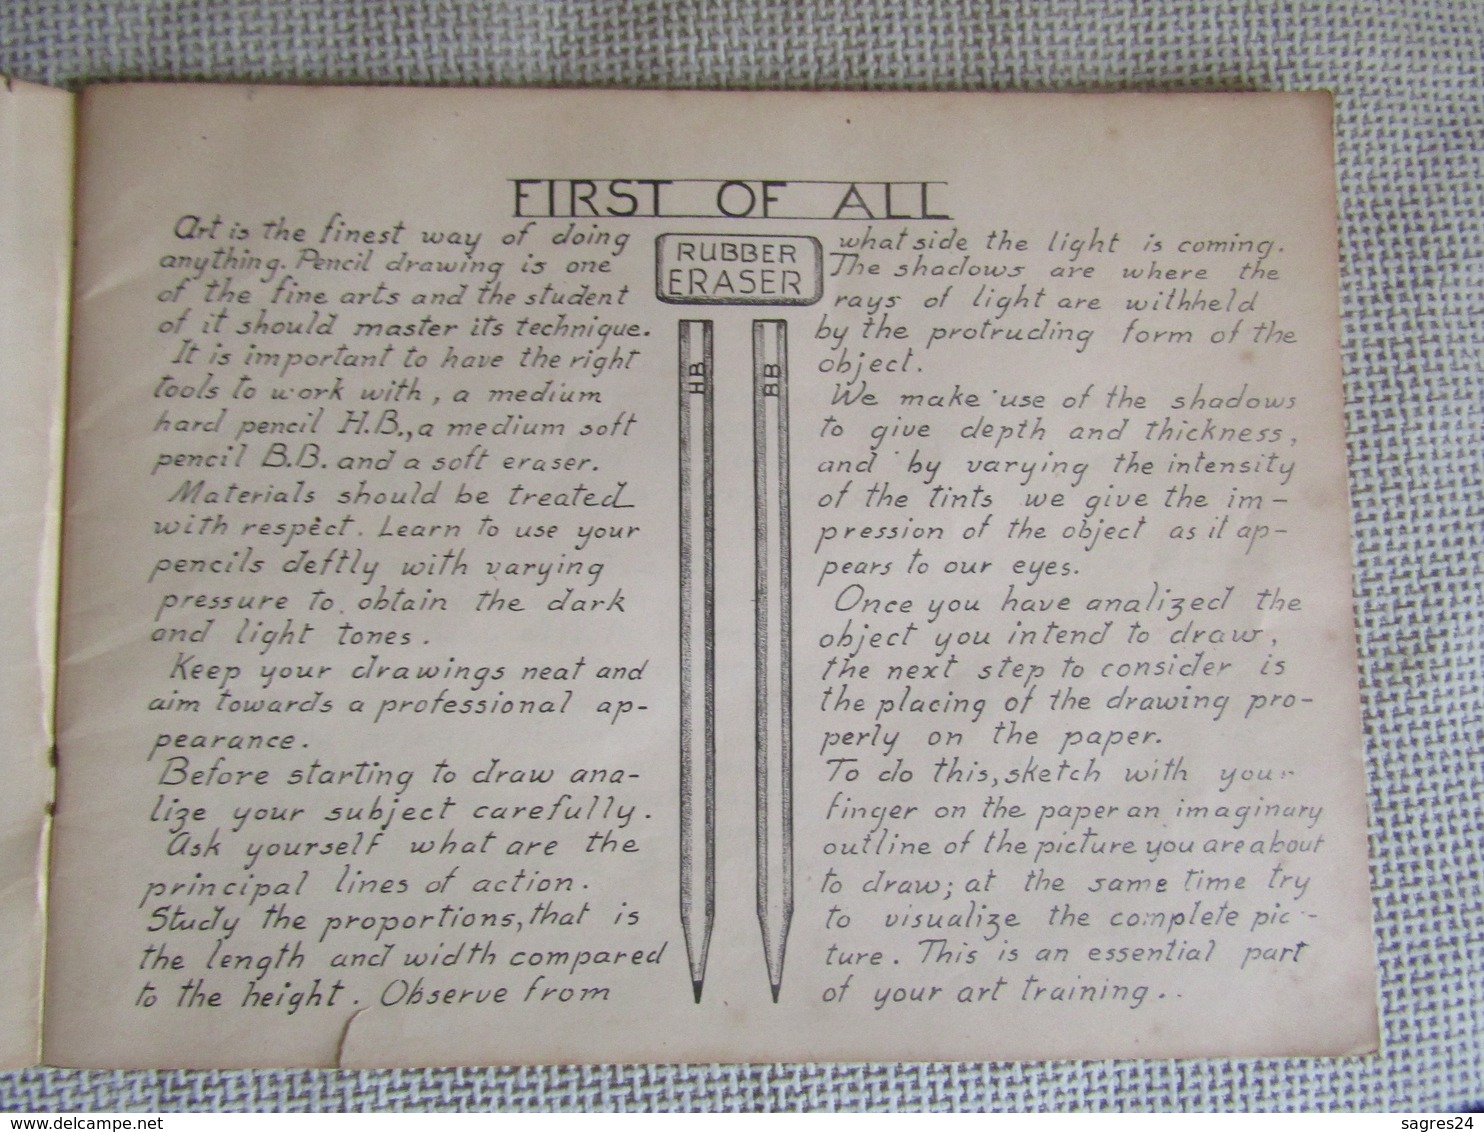 FIRST OF ALL
Art is the finest way of doing
anything. Pencil drawing is one
of the fine arts and the student
of it should master its technique.
It is important to have the right
tools to work with, a medium
hard pencil H.B., a medium soft
pencil B.B. and a soft eraser.
Materials should be treated
with respect. Learn to use your
pencils deftly with varying
pressure to obtain the dark
and light tones.
Keep your drawings neat and
aim towards a professional ap-
pearance.
Before starting to draw ana-
lize your subject carefully.
Ask yourself what are the
principal lines of action.
Study the proportions, that is
the length and width compared
to the height. Observe from
RUBBER
ERASER
HB
BB
what side the light is coming.
The shadows are where the
rays of light are withheld
by the protruding form of the
object.
We make use of the shadows
to give depth and thickness,
and by varying the intensity
of the tints we give the im-
pression of the object as it ap-
pears to our eyes.
Once you have analized the
object you intend to draw,
the next step to consider is
the placing of the drawing pro-
perly on the paper.
To do this, sketch with your
finger on the paper an imaginary
outline of the picture you are about
to draw; at the same time try
to visualize the complete pic-
ture. This is an essential part
of your art training..
www.delcampe.net
sagres24